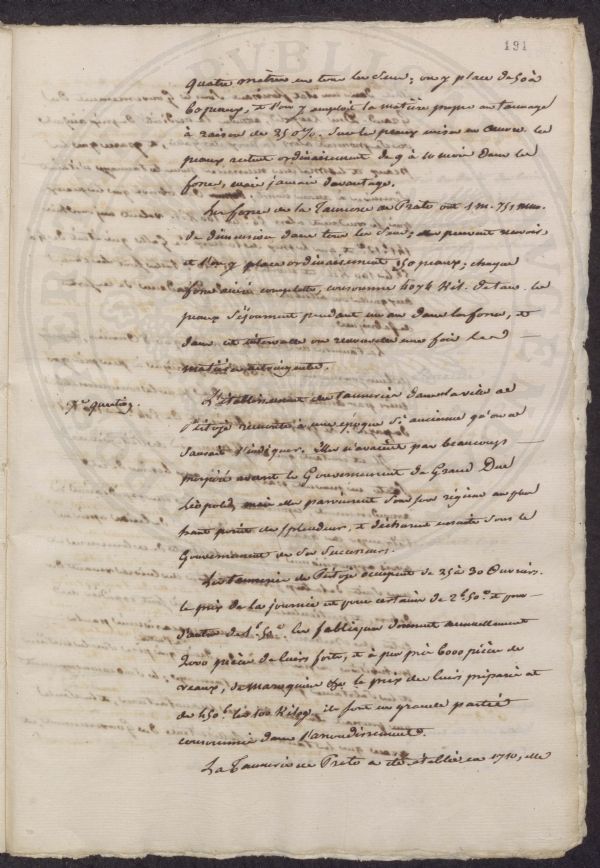 191
quatre mètres en tous les sens; on y place de 50 à
60 peaux, et l'on y emploie la matière propre au tannage
à raison de 350 %. Sur les peaux mises en œuvre. les
peaux restent ordinairement de 9 à 10 mois dans les
fosses, mais jamais davantage.
Les fosses de la Tannerie de Prato ont 1 m. 75 mm.
de dimension dans tous les sens; elles peuvent recevoir
et l'on y place ordinairement 150 peaux; chaque
fosse ainsi complette, consomme 4074 Kil. de tan. les
peaux séjournent pendant un an dans la fosse, et
dans cet intervalle on renouvelle une fois les
matières astringentes.
Xe. question.
L'établissement des tanneries dans la ville de
Pistoje remonte à une époque si ancienne qu'on ne
saurait l'indiquer. elles n'avaient pas beaucoup
prospéré avant le Gouvernement du Grand Duc
Léopold, mais elles parvinrent sous son régime au plus
haut point de splendeur, et déchurent ensuite sous le
Gouvernement de ses successeurs.
Les tanneries de Pistoje occupent de 25 à 30 Ouvriers.
le prix de la journée est pour certains de 2.f 50.c et pour
d'autres de 1.f 50.c les fabriques donnent annuellement
2000 pièces de cuirs forts, et à peu près 6000 pièces de
veaux, de maroquins &a. le prix des cuirs préparés est
de 450 f. les 100 Kilog. ils sont en grande partie
consommés dans l'arrondissement.
La Tannerie de Prato a été établie en 1710, elle